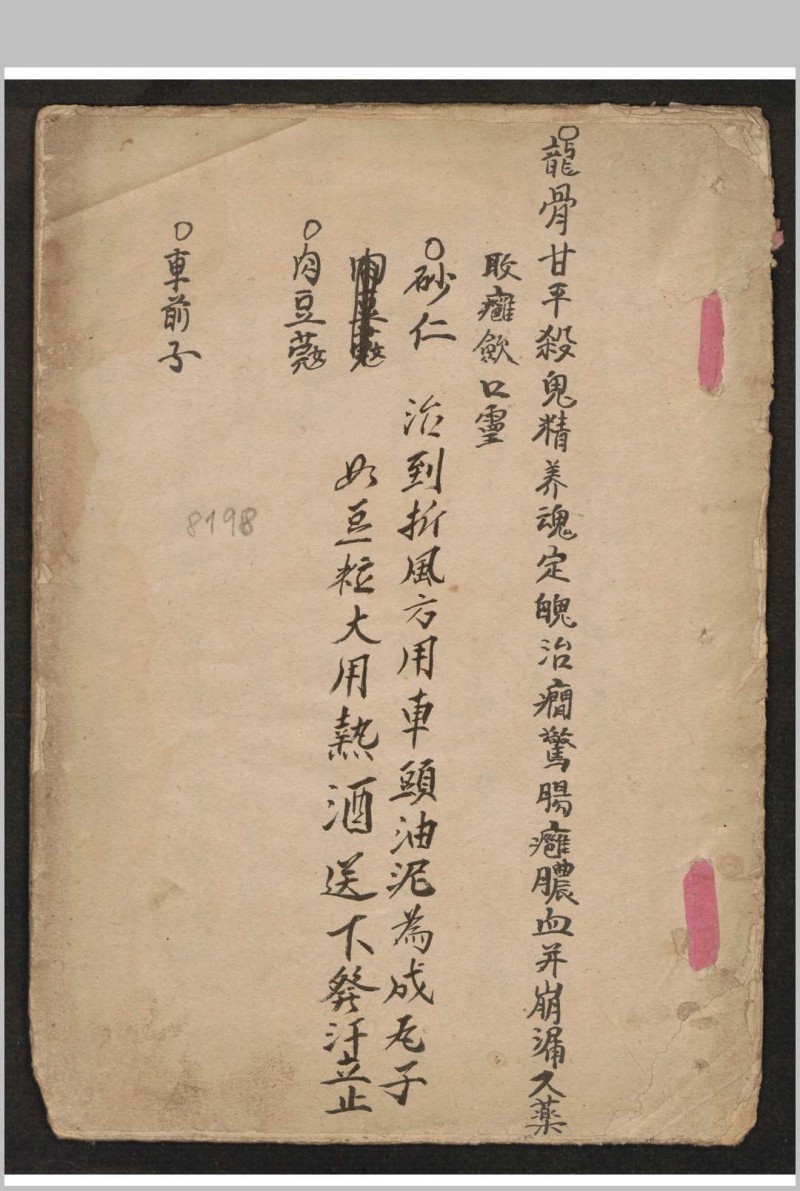 龍骨甘平殺鬼精养魂定魄治癇驚腸癰膿血并崩漏久藥
敗癰斂口靈
砂仁
治到折風方用車頭油泥為成丸子
如豆粒大用熱酒送下發汗立止
肉豆蔻
車前子
8198